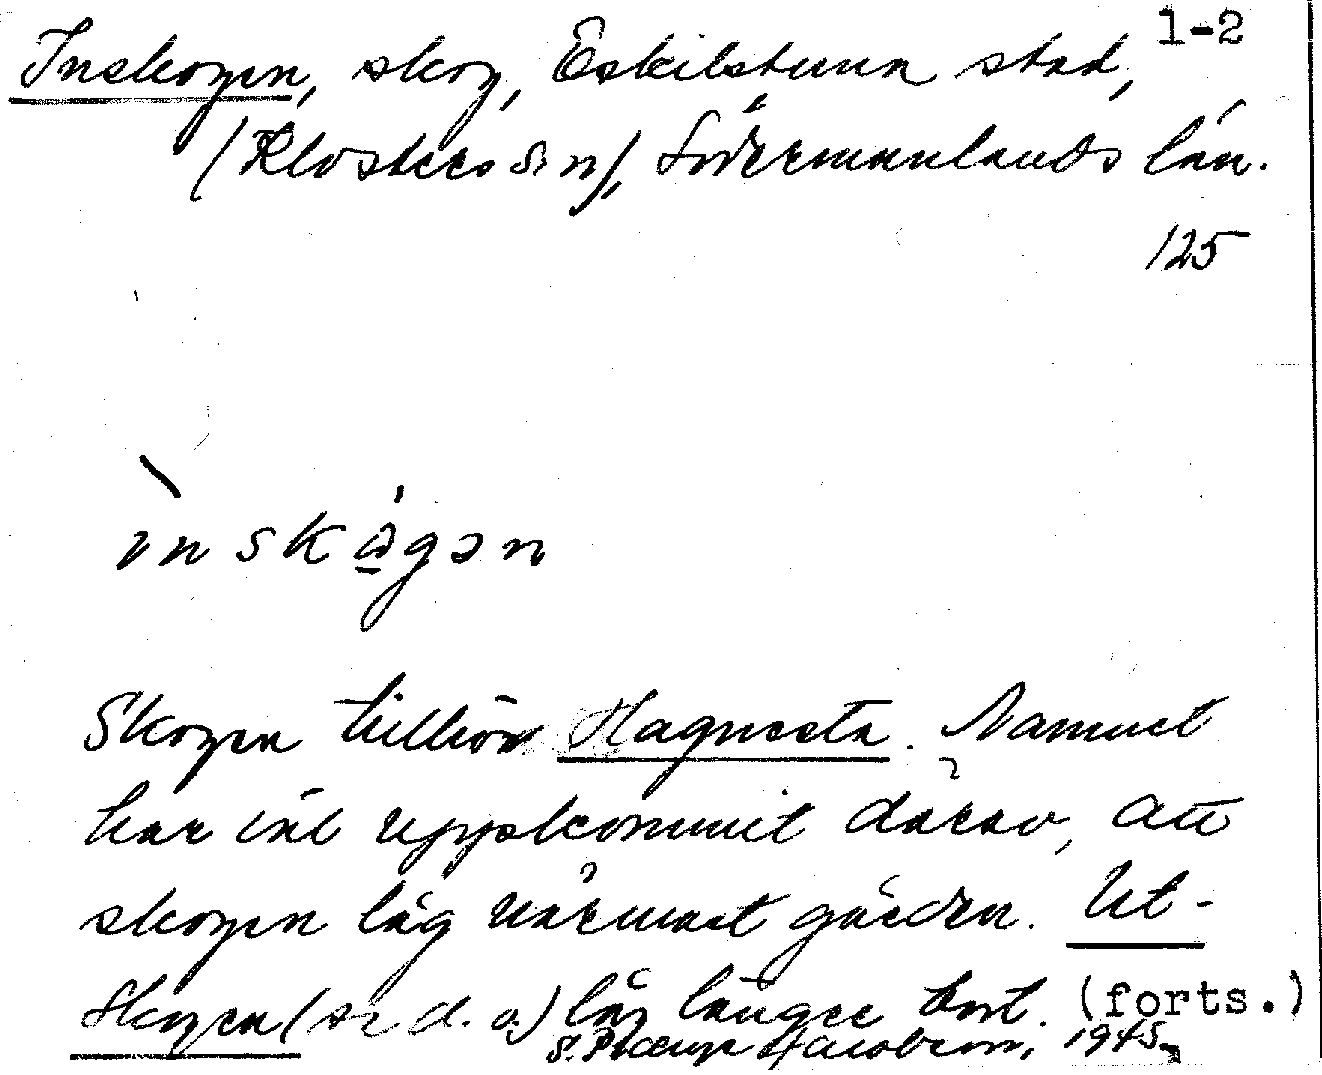 1-2
Inskogen, skog, Eskilstuna stad,
(Klosters sn), Södermanlands län.
125
ìnskå̀gən
Skogen tillhör Hagnesta. Namnet
har väl uppkommit därav, att
skogen låg närmast gården. Ut-
skogen (se d. o.) låg längre bort. (forts.)
Jacobson, 1945.